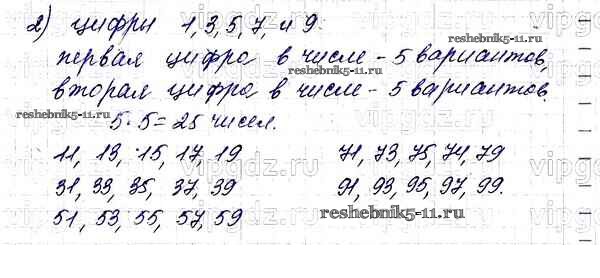 2) цифры 1, 3, 5, 7 и 9.
первая цифра в числе - 5 вариантов,
reshebnik5-11.ru
вторая цифра в числе - 5 вариантов.
reshebnik5-11.ru
5 · 5 = 25 чисел.
11, 13, 15, 17, 19
71, 73, 75, 74, 79
31, 33, 35, 37, 39
91, 93, 95, 97, 99.
51, 53, 55, 57, 59
reshebnik5-11.ru
vipgdz.ru
vipgdz.ru
vipgdz.ru
vipgdz.ru